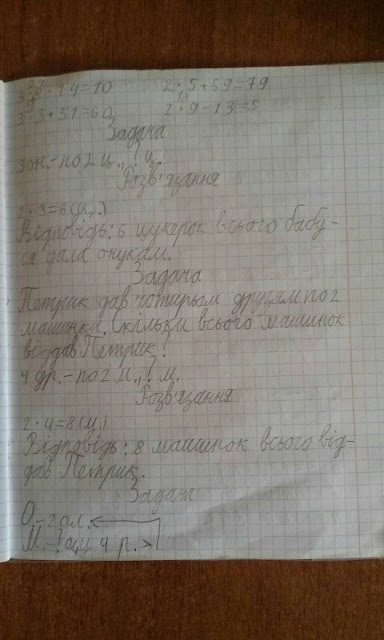 3·8-14=10 2·5+69=79
3·3+51=60 2·9-13=5
Задача
3 он. - по 2 ц., ? ц.
Розв'язання
2·3=6(ц.)
Відповідь: 6 цукерок всього бабу-
ся дала онукам.
Задача
Петрик дав чотирьом друзям по 2
машинки. Скільки всього машинок
віддав Петрик?
4 др. - по 2 м., ? м.
Розв'язання
2·4=8(ц.)
Відповідь: 8 машинок всього від-
дав Петрик.
Задача
О. - 2 ол.
М. - ?, 4 р. >